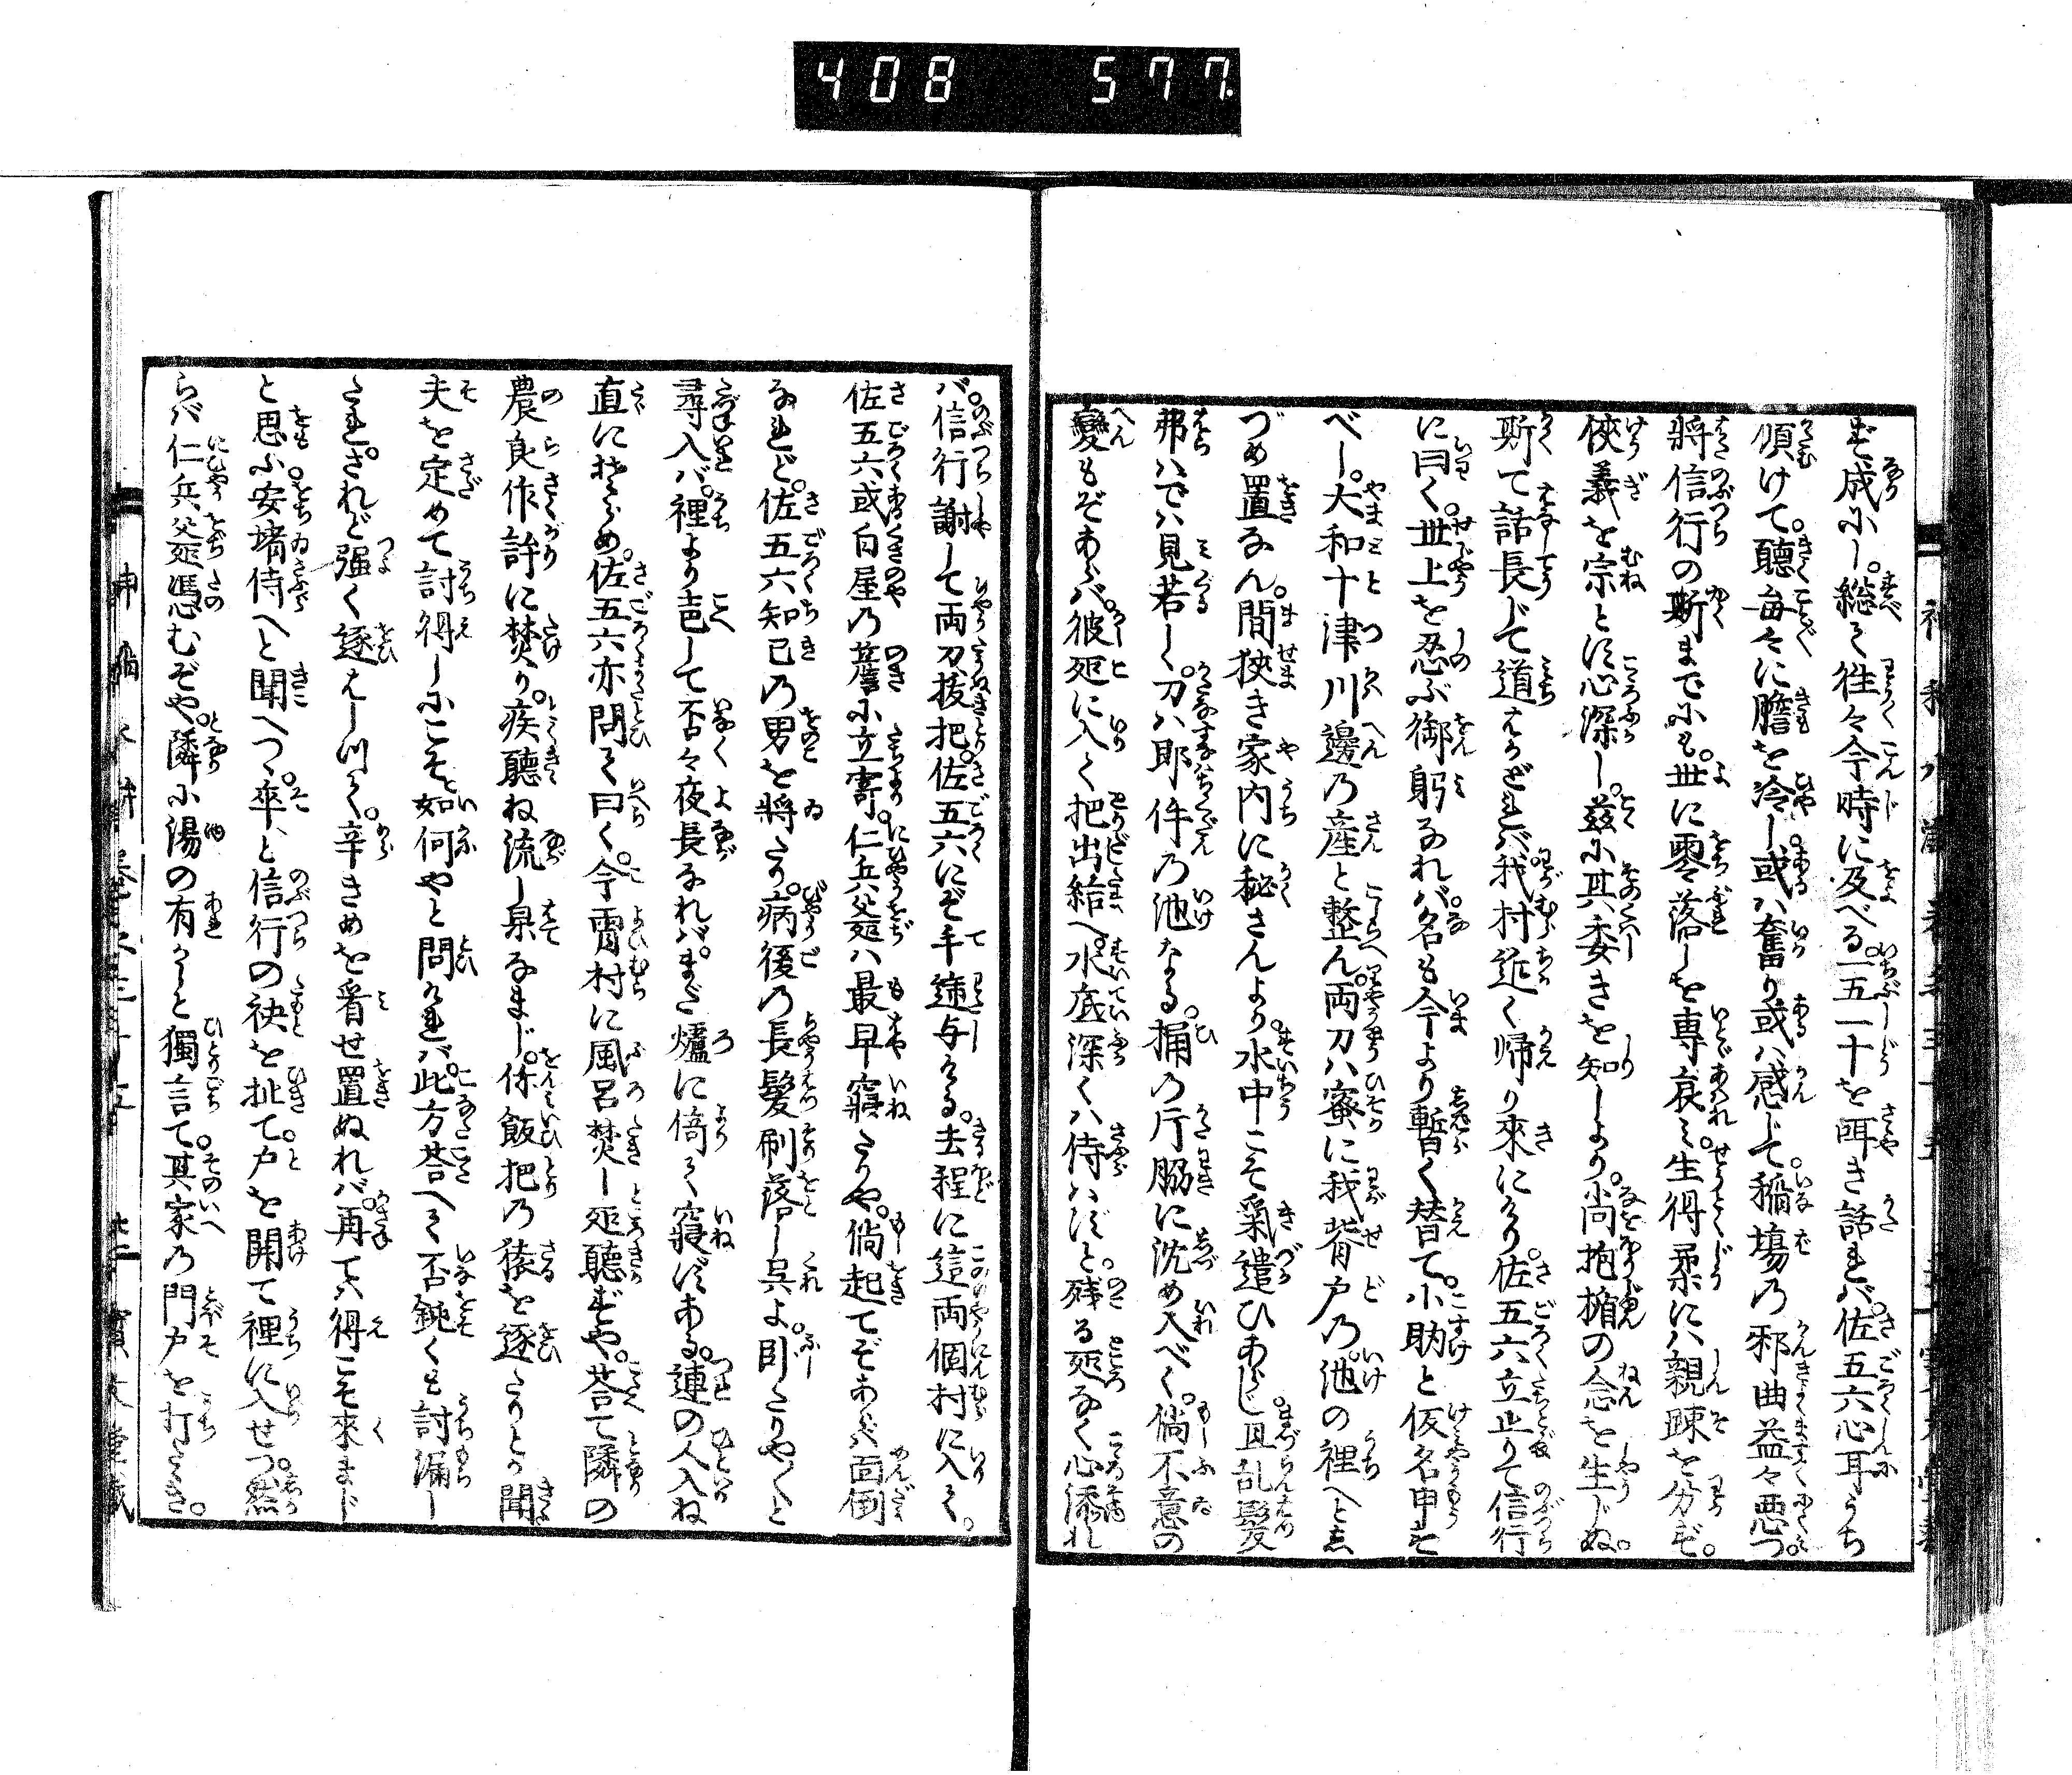 408 577.
ず成にし。総て往々今時に及べる。一五一十を咡き話せバ。佐五六心耳うち
傾けて。聴毎々に膽を冷し。或ハ奮り或ハ感じて。稲塲乃邪曲益々悪つ。
將信行の斯までにも。世に零落しを専哀ミ。生得柔にハ親疎を分ず。
侠義を宗とし心深し。茲に其委きを知しより。尚抱揗の念を生じぬ。
斯て話長じて道はかどれバ。我村近く帰り來にけり。佐五六立止りて信行
に曰く。世上を忍ぶ御躬なれバ。名も今より暫く替て。小助と仮名申す
べし。大和十津川邊乃産と整ん。両刀ハ蜜に我背戸乃。池の裡へとし
づめ置なん。間狭き家内に秘さんより。水中こそ氣遣ひあらじ。且乱髪
弗ハでハ見若しく。刀ハ即件乃池なる。桶乃片脇に沈め入べく。倘不意の
變もぞあらバ。彼処に入て把出給へ。水底深くハ侍ハずと。残る処なく心添れ
バ。信行謝して両刀抜把。佐五六にぞ手逓与ける。去程に這両個村に入て。
佐五六或白屋乃簷に立寄。仁兵父爺ハ最早寐たりや。倘起てぞあらバ面倒
なれど。佐五六知己乃男を將たり。病後乃長髪剃落し呉よ。臥たりや〱と
尋入バ。裡より苔して否々夜長なれバ。まだ爐に倚て寐ずある。連の人入ね
直にはそらめ。佐五六亦問て曰く。今霄村に風呂焚し処聴ずや。荅て隣の
農良作許に焚けり。疾聴ね流し泉なまじ。你飯把乃猿を逐たりとか聞
夫を定めて討得しにこそ。如何やと問けれバ。此方荅へて否鈍くも討漏し
たれ。されど强く逐はしつれバ。辛きめを看せ置ぬれバ。再てハ得こそ來まじ
と思ふ。安堵侍へと聞へつゝ。卒と信行の袂を扯て。戸を開て裡に入せつ。然
らバ仁兵父爺憑むぞや。隣に湯の有かしと獨言て。其家乃門戸を打たゝき。